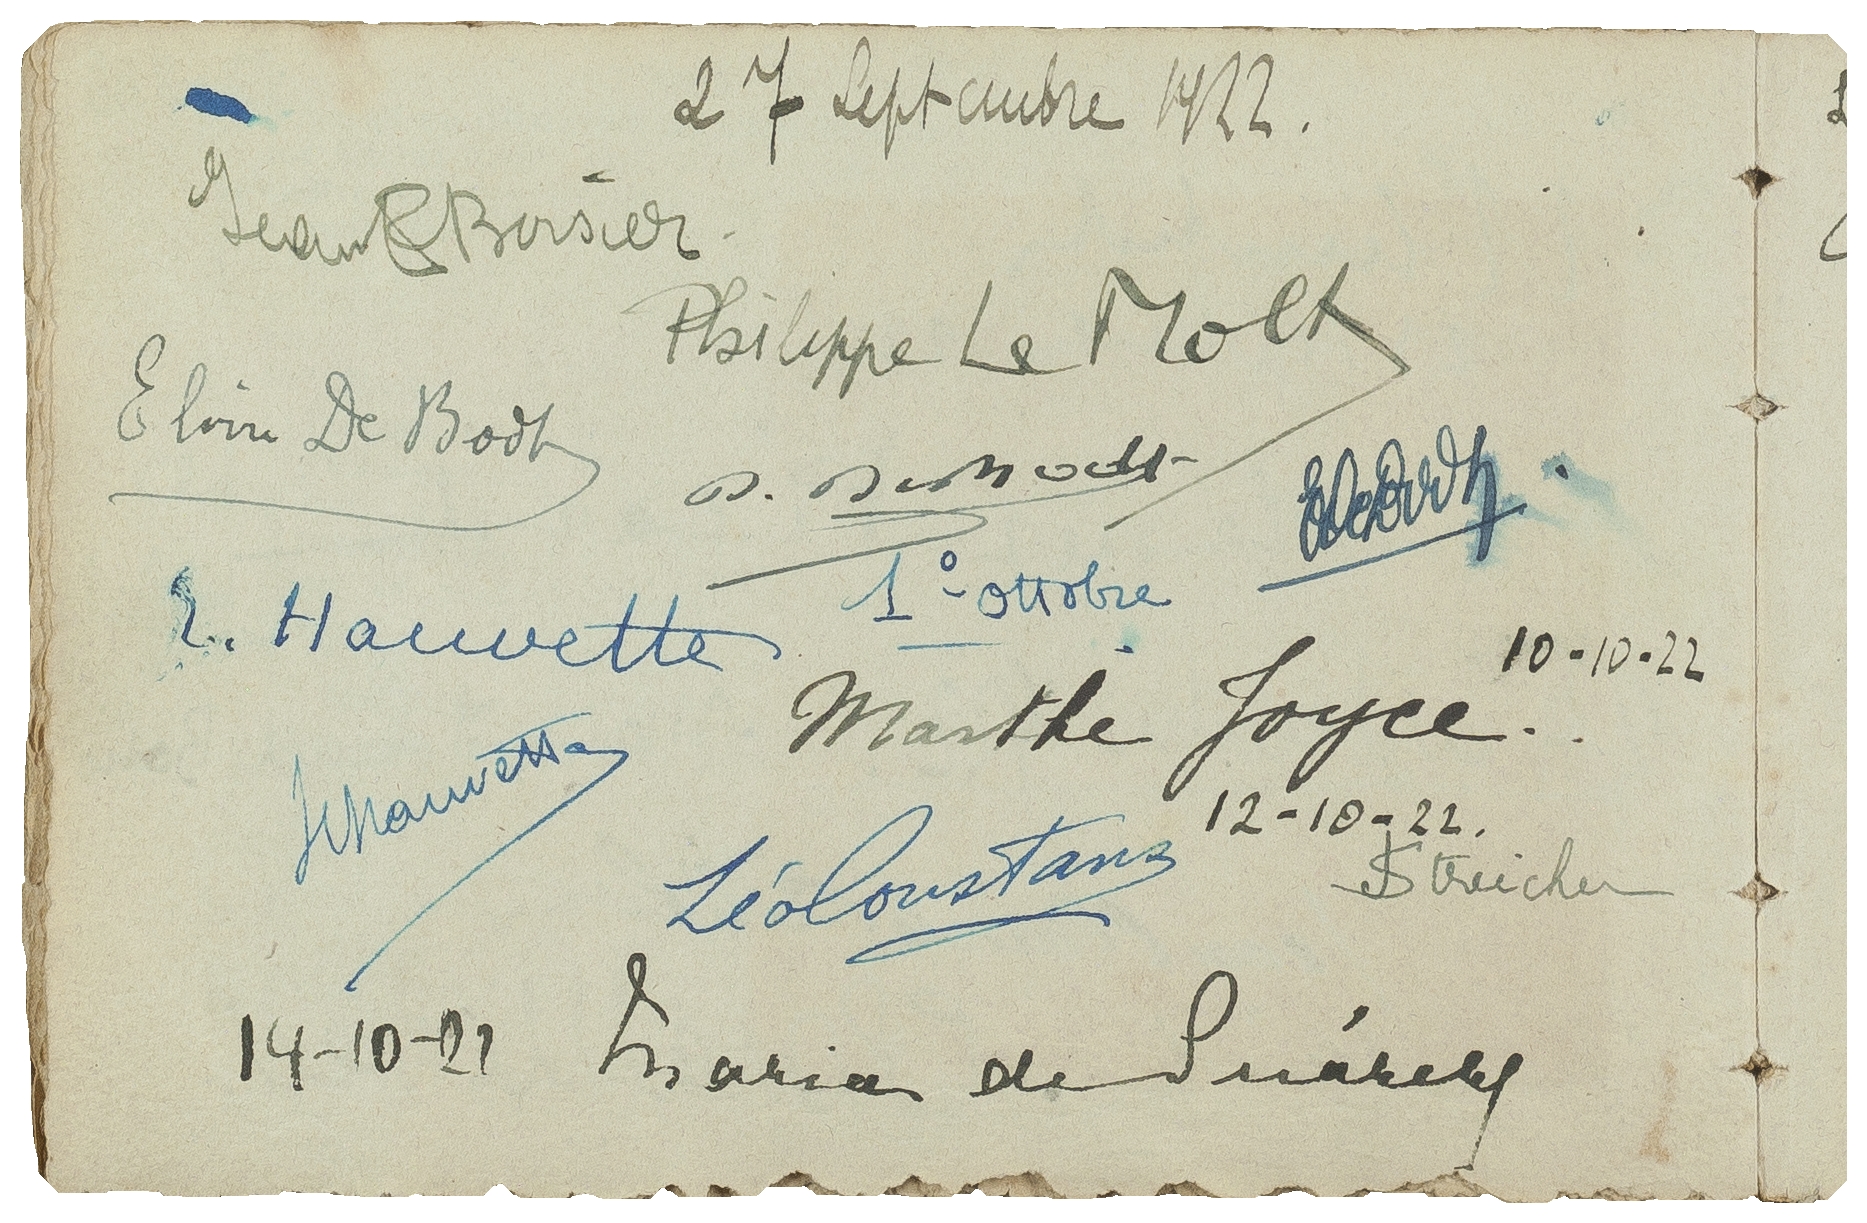 27 Septembre 1922.
Jean Boisier.
Philippe Le Molt
Elvire De Bodt
1º ottobre
H. Hauvette
10-10-22
Marthe Joyce.
Hauvette
12-10-22.
Streicher
Léo Constans
14-10-22 Maria de Suárez